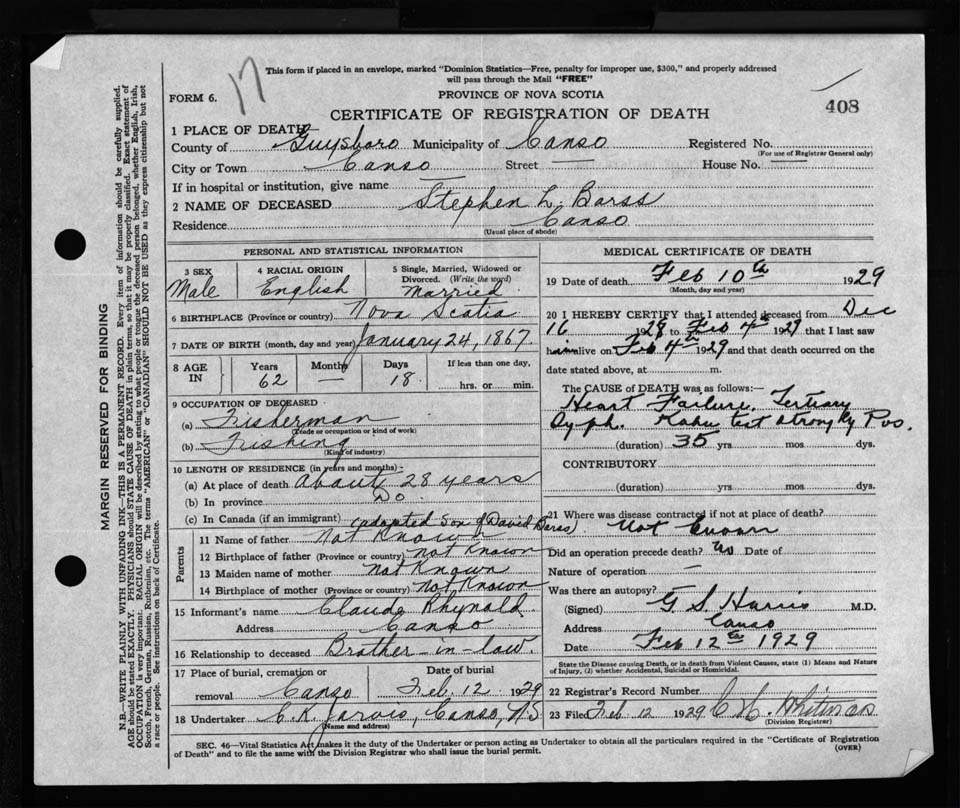 17
This form if placed in an envelope, marked "Dominion Statistics—Free, penalty for improper use, $300," and properly addressed
will pass through the Mail "FREE"
PROVINCE OF NOVA SCOTIA
FORM 6.
CERTIFICATE OF REGISTRATION OF DEATH
408
1 PLACE OF DEATH
County of Guysboro Municipality of Canso Registered No.
(For use of Registrar General only)
City or Town Canso Street — House No. —
If in hospital or institution, give name —
2 NAME OF DECEASED Stephen L. Barss
Residence Canso
(Usual place of abode)
PERSONAL AND STATISTICAL INFORMATION
3 SEX
Male
4 RACIAL ORIGIN
English
5 Single, Married, Widowed or
Divorced. (Write the word)
Married
6 BIRTHPLACE (Province or country) Nova Scotia
7 DATE OF BIRTH (month, day and year) January 24, 1867.
8 AGE IN
Years Months Days If less than one day,
62 — 18. hrs. or min.
9 OCCUPATION OF DECEASED
(a) Fisherman
(Trade or occupation or kind of work)
(b) Fishing
(Kind of industry)
10 LENGTH OF RESIDENCE (in years and months) :
(a) At place of death About 28 years
(b) In province Do
(c) In Canada (if an immigrant) (adopted son of David Barss)
Parents
11 Name of father Not Known
12 Birthplace of father (Province or country) Not Known
13 Maiden name of mother Not Known
14 Birthplace of mother (Province or country) Not Known
15 Informant's name Claude Rhynold.
Address Canso
16 Relationship to deceased Brother-in-law.
17 Place of burial, cremation or Date of burial
removal Canso Feb. 12 1929
18 Undertaker C. K. Jarvis, Canso, N.S
(Name and address)
MEDICAL CERTIFICATE OF DEATH
19 Date of death Feb 10th 1929
(Month, day and year)
20 I HEREBY CERTIFY that I attended deceased from Dec
16 1928 to Feb 4th 1929 that I last saw
him alive on Feb 4th 1929 and that death occurred on the
date stated above, at m.
The CAUSE of DEATH was as follows:—
Heart Failure. Tertiary
Syph. Kahn test strongly Pos.
(duration) 35 yrs mos dys.
CONTRIBUTORY
(duration) yrs mos dys.
21 Where was disease contracted if not at place of death?
Not known
Did an operation precede death? No Date of
Nature of operation —
Was there an autopsy? —
(Signed) G S Harris M.D.
Address Canso
Date Feb 12th 1929
State the Disease causing Death, or in death from Violent Causes, state (1) Means and Nature
of Injury, (2) whether Accidental, Suicidal or Homicidal.
22 Registrar's Record Number
23 Filed Feb. 12 1929 C. H.
(Division Registrar)
SEC. 46—Vital Statistics Act makes it the duty of the Undertaker or person acting as Undertaker to obtain all the particulars required in the "Certificate of Registration
of Death" and to file the same with the Division Registrar who shall issue the burial permit.
(OVER)
MARGIN RESERVED FOR BINDING
N.B.—WRITE PLAINLY WITH UNFADING INK—THIS IS A PERMANENT RECORD. Every item of information should be carefully supplied.
AGE should be stated EXACTLY. PHYSICIANS should STATE CAUSE OF DEATH in plain terms, so that it may be properly classified. Exact statement of
OCCUPATION is very important. RACIAL ORIGIN will be described by stating to what people or tongue the deceased person belonged, whether English, Irish,
Scotch, French, German, Russian, Ruthenian, etc. The terms "AMERICAN" or "CANADIAN" SHOULD NOT BE USED as they express citizenship but not
a race or people. See instructions on back of Certificate.